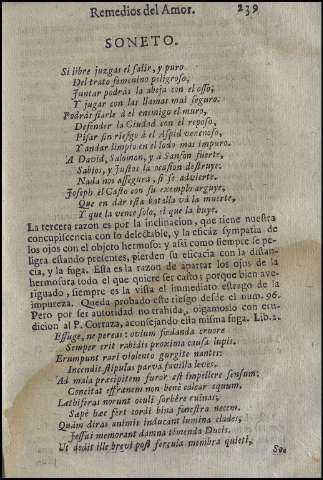 Remedios del Amor. 239
SONETO.
Si libre juzgas el salir, y puro
Del trato femenino peligroso,
Juntar podràs la abeja con el osso,
Y jugar con las llamas mui seguro.
Podràs fiarle à el enemigo el muro,
Defender la Ciudad con el reposo,
Pisar sin riesgo à el Aspid venenoso,
Y andar limpio en el lodo mas impuro.
A David, Salomon, y à Sanson fuerte,
Sabios, y Justos la ocasion destruye:
Nada nos assegura, si se advierte.
Joseph el Casto con su exemplo arguye,
Que en dàr esta batalla và la muerte,
Y que la vence solo, el que la huye.
La tercera razon es por la inclinacion, que tiene nuestra
concupiscencia con lo delectable, y la eficàz sympatia de
los ojos con el objeto hermoso: y assi como siempre se pe-
ligra estando presentes, pierden su eficacia con la distan-
cia, y la fuga. Esta es la razon de apartar los ojos de la
hermosura todo el que quiere ser casto; porque bien ave-
riguado, siempre es la vista el immediato estrago de la
impureza. Queda probado este riesgo desde el num. 96.
Pero por ser autoridad no trahida, oigamoslo con eru-
dicion al P. Corraza, aconsejando esta misma fuga. Lib. 2.
Effuge, ne pereas: ovium fœdanda cruore
Semper erit rabidis proxima causa lupis.
Erumpunt rari violento gurgite nantes:
Incendit stipulas parva favilla leves.
Ad mala præcipitem furor est impellere sensum;
Concitat effrænem non benè calcar equum.
Lathiferas norunt oculi sorbère ruinas;
Sæpè hæc fert cordi bina fenestra necem.
Quàm diras animis inducant lumina clades,
Jessæi memorant damna timenda Ducis.
Ut dedit ille brevi post fercula membra quieti,